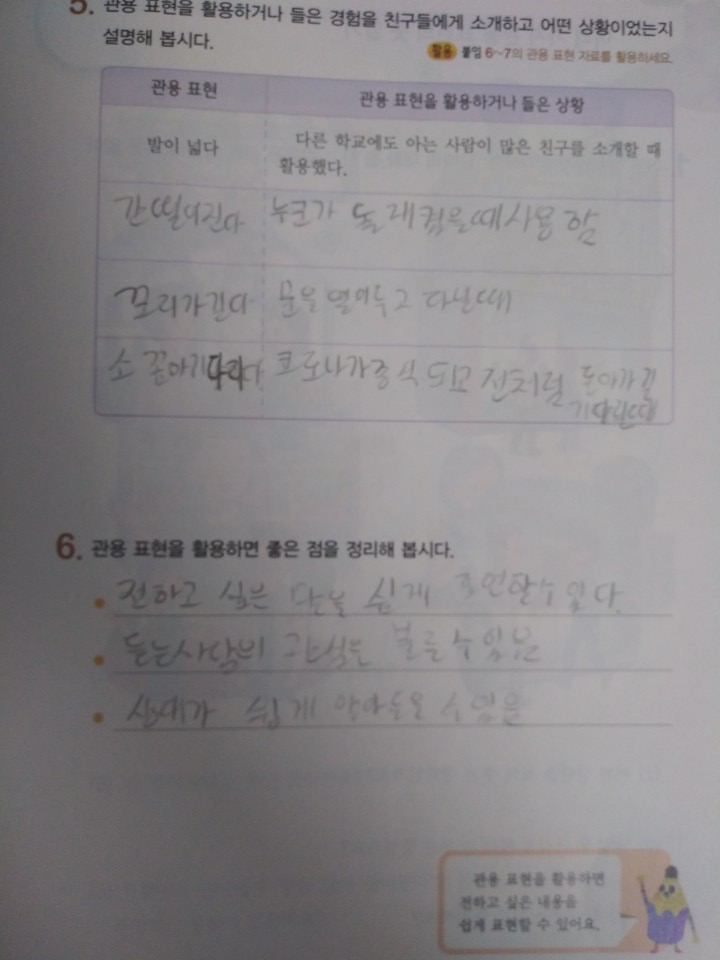 5. 관용 표현을 활용하거나 들은 경험을 친구들에게 소개하고 어떤 상황이었는지
설명해 봅시다.
활용 붙임 6~7의 관용 표현 자료를 활용하세요.
관용 표현 관용 표현을 활용하거나 들은 상황
발이 넓다 다른 학교에도 아는 사람이 많은 친구를 소개할 때
활용했다.
간 떨어진다 누군가 놀래켰을때 사용함
꼬리가 긴다 문을 열어두고 다닌때
소 코로나가 종식 되고 전처럼 돌아가길
기다린때
6. 관용 표현을 활용하면 좋은 점을 정리해 봅시다.
전하고 싶은 말을 쉽게 표현할수 있다.
듣는사람의 관심을 끌 수 있음
상대가 쉽게 알아들을 수 있음
관용 표현을 활용하면
전하고 싶은 내용을
쉽게 표현할 수 있어요.